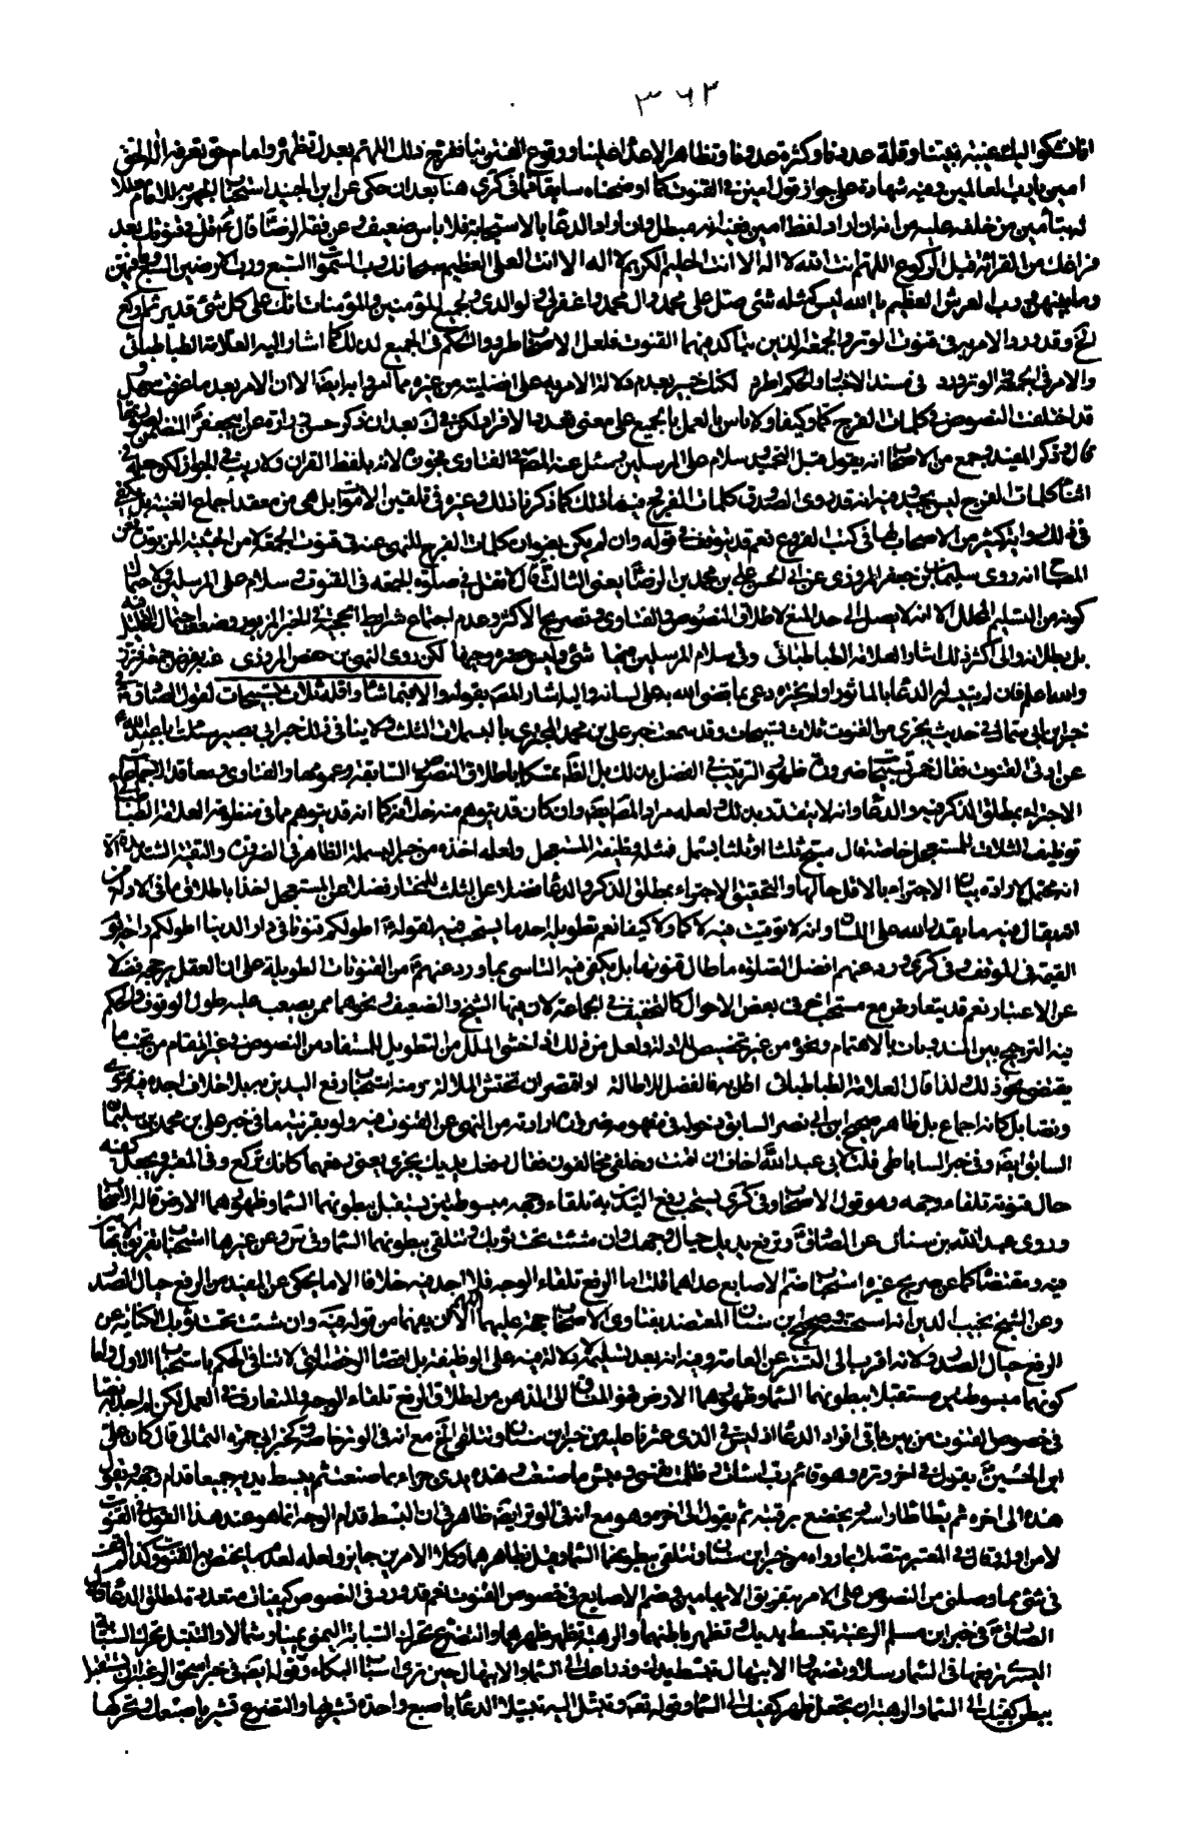 ٣٦٣
انا نشكو اليك غيبة نبينا وقلة عددنا وكثرة عدونا وتظاهر الاعداء علينا ووقوع الفتن بنا ففرج ذلك اللهم بعدل تظهره وامام حق نعرفه اله الحق
امين يا رب العالمين وفيه شهادة على جواز قول امين في القنوت كما اوضحناه سابقا فما في كرى هنا بعد ان حكى عن ابن الجنيد استحباب الجهر به للامام
ليتأمن من خلفه عليه من انه ان اراد لفظ امين فغير انه مبطل وان اراد الدعاء بالاستجابة فلا باس ضعيف وعن فقه الرضا قال ثم قل في قنوتك بعد
فراغك من القرائة قبل الركوع اللهم انت الله لا اله الا انت الحليم الكريم لا اله الا انت العلي العظيم سبحانك رب السموات السبع ورب الارضين السبع وما فيهن
وما بينهن ورب العرش العظيم يا الله ليس كمثله شئ صل على محمد وال محمد واغفر لي ولوالدي ولجميع المؤمنين والمؤمنات انك على كل شئ قدير ثم اركع
الخ وقد ورد الامر به في قنوت الوتر والجمعة الذين يتاكد فيهما القنوت فلعل الاصحاب طردوا الحكم في الجميع لذلك كما اشار اليه العلامة الطباطبائي
والامر في الجمعة والوتر ورد في مسند الاخبار والحكم اطرد لكنك خبير بعدم دلالة الامر به على افضليته من غيره مما امروا به ايضا الا ان الامر بعد ما عرفت سهل
قد اختلفت النصوص في كلمات الفرج كما وكيفا ولا باس بالعمل بالجميع على معنى
قال وذكر المفيد وجمع من الاصحاب انه يقول قبل التحميد وسلام على المرسلين وسئل عنه المص في الفتاوى فجوزه لانه بلفظ القران ولا ريب في الجواز لكن جعله في
اثناء كلمات الفرج ليس بجيد فيه انه قد روى الصدوق كلمات الفرج فيها ذلك كما ذكرنا ذلك وغيره في تلقين الاموات بل هي من معقد اجماع الغنية بل
في ذلك رواية كثير من الاصحاب لها في كتب الفروع نعم قد يتوقف في قوله وان لم يكن بعنوان كلمات الفرج للنهي عنه في قنوت الجمعة
المصباح انه روى سليمان بن جعفر المروزي عن ابي الحسن علي بن محمد بن الرضا يعني الثالث قال لا تقل في صلوة الجمعة في القنوت وسلام على المرسلين ولاحتمال
كونه من التسليم المحلل الا انه لا يصل الى حد المنع لاطلاق النصوص والفتاوى وتصريح الاكثر وعدم اجتماع شرايط الحجية في الخبر المزبور وضعف احتمال التحليل فيه
بل بطلانه والى اكثر ذلك اشار العلامة الطباطبائي وفي سلام المرسلين فيها شئ وليس حجره وجيها لكن روى النهي بن حفص المروزي
والله اعلم فان لم يتيسر له الدعاء بالماثور او لم يختره دعى بما قضى الله به على لسانه واليه اشار المص بقوله والا فبما شاء واقله ثلاث تسبيحات لقول الصادق في
خبر ابن ابي سمال في حديث يجزي من القنوت ثلاث تسبيحات وقد سمعت خبر علي بن محمد الجزري بالبسملات الثلث ولا ينافي ذلك خبر ابي بصير سئلت ابا عبد الله
عن ادنى القنوت فقال خمس تسبيحات ضرورة ظهور الترتيب في الفضل بذلك بل الظاهر تمسكا باطلاق النصوص السابقة وعمومها والفتاوى ومعاقد الاجماعات
الاجتزاء بمطلق الذكر فيه والدعاء وانه لا يتقدر بذلك ولعله مراد المص ايضا وان كان قد يتوهم منه خلافه كما انه قد يتوهم مما في منظومة العلامة الطباطبائي
توظيف الثلاث للمستعجل خاصة قال سبح ثلثا او ثلثا بسمل فتلك وظيفة المستعجل ولعله اخذه من خبر البسملة الظاهر في الضرورة والتقية الشديدة الا
انه محتمل لارادة بيان الاجتزاء بالاقل حالها والتحقيق الاجتزاء بمطلق الذكر والدعاء فضلا عن الثلث للمختار فضلا عن المستعجل اخذا باطلاق ما في الادلة من
انه يقال فيه ما يقدر الله على اللسان وانه لا توقيت فيه لا كما ولا كيفا نعم تطويله احد ما يستحب فيه لقوله اطولكم قنوتا في دار الدنيا اطولكم راحة يوم
القيمة في الموقف وفي كرى ورد عنهم افضل الصلوة ما طال قنوتها بل يكفي فيه التاسي بما ورد عنهم من القنوتات الطويلة على ان العقل يرجحه فضلا
عن الاعتبار نعم قد يتعارض مع مستحب اخر في بعض الاحوال كالتخفيف في الجماعة لان فيها الشيخ والضعيف ونحوهما ممن يصعب عليه طول الوقوف والحكم
فيه الترجيح بين المندوبات بالاهتمام ونحوه من غير تخصيص للادلة ولعل من ذلك اذا خشي الملل من التطويل للمستفاد من النصوص في غير المقام من تجنب ما
يقتضي نحو ذلك لذا قال العلامة الطباطبائي اطل به فالفضل للاطالة او اقتصر ان تختش الملالة ومنه استحباب رفع اليدين به بلا خلاف اجده فيه فتوى
ونصا بل كانه اجماع بل ظاهر صحيح ابن ابي نصر السابق دخوله في مفهومه ضرورة ارادته من النهي عن القنوت فيه ولو بقرينة ما في خبر علي بن محمد بن سليمان
السابق ايضا وفي خبر الساباطي قلت لابي عبد الله اخاف ان اقنت وخلفي مخالفون فقال رفعك يديك يجزي يعني رفعهما كانك تركع وفي المعتبر ويجعل كفيه
حال قنوته تلقاء وجهه وهو قول الاصحاب وفي كرى يستحب رفع اليدين به تلقاء وجهه مبسوطتين يستقبل ببطونهما السماء وظهورهما الارض قاله الاصحاب
وروى عبد الله بن سنان عن الصادق وترفع يديك حيال وجهك وان شئت تحت ثوبك وتتلقى ببطونهما السماء وفي وعن غيرها استحباب تفريق الابهام
فيه ومقتضاه كما عن صريح غيره استحباب ضم الاصابع عداهما قلت اما الرفع تلقاء الوجه فلا اجد فيه خلافا الا ما يحكى عن المفيد من الرفع حيال الصدر
وعن الشيخ نجيب الدين انه استحسنه وصحيح بن سنان المعتضد بفتاوى الاصحاب حجة عليهما من قوله فيه وان شئت تحت ثوبك الكناية عن
الرفع حيال الصدر ولانه اقرب الى التستر عن العامة وفيه انه بعد تسليمه لا دلالة فيه على الوظيفة بل اقصاه الرخصة التي لا تنافي الحكم باستحباب الاول واما
كونهما مبسوطتين مستقبلا ببطونهما السماء وظهورهما الارض فهو المنساق الى الذهن من اطلاق الرفع تلقاء الوجه والمتعارف في العمل لكن لم اجد به نصا
في خصوص القنوت من بين باقي افراد الدعاء اذ ليس في الذي عثرنا عليه من خبر ابن سنان وتتلقى الخ مع انه في الوتر خاصة كخبر ابي حمزه الثمالي قال كان علي
بن الحسين يقول في اخر وتره وهو قائم رب اسأت وظلمت نفسي وبئس ما صنعت وهذه يدي جزاء بما صنعت ثم يبسط يديه جميعا قدام وجهه ويقول
هذه الى اخره ثم يطاطا راسه ويخضع برقبته ثم يقول الى اخره وهو مع انه في الوتر ايضا ظاهر في ان البسط قدام الوجه انما هو عند هذا القول في القنوت
لا من اوله قال في المعتبر متصلا بما رواه من خبر ابن سنان وتتلقى ببطونهما السماء وقيل بظاهرهما وكلا الامرين جايز ولعله لعدم ما يختص به القنوت وكذا لم اقف
في شئ مما وصلني من النصوص على الامر بتفريق الابهامين وضم الاصابع في خصوص القنوت نعم قد ورد في النصوص كيفيات متعددة لمطلق الدعاء قال
الصادق في خبر ابن مسلم الرغبة تبسط يديك وتظهر باطنهما والرهبة تظهر ظهرهما والتضرع تحرك السبابة اليمنى يمينا وشمالا والتبتل تحرك السبابة
اليسرى ترفعها في السماء رسلا وتضعها والابتهال تبسط يدك وذراعك الى السماء والابتهال حين ترى اسباب البكاء وقوله ايضا في خبر اسحق الرغبة ان تستقبل
ببطن كفيك الى السماء والرهبة ان تجعل ظهر كفيك الى السماء وقوله تعالى وتبتل اليه تبتيلا الدعاء باصبع واحدة تشير بها والتضرع تشير باصبعيك وتحركهما